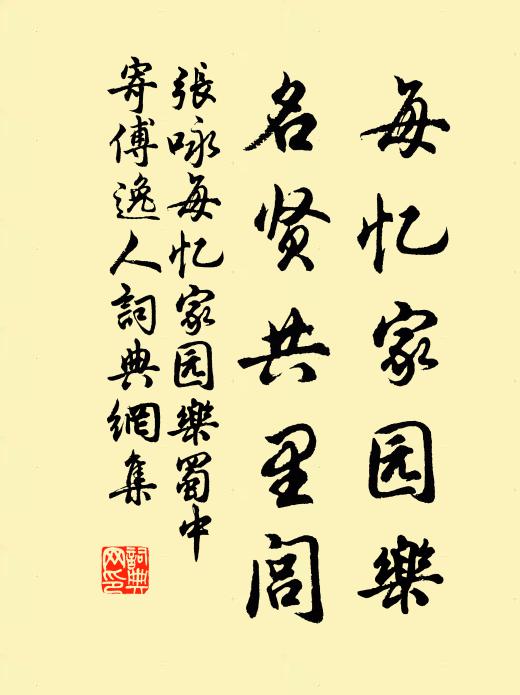 每忆家园樂
名贤共里閭
張咏每忆家园樂蜀中
寄傅逸人詞典網集
詞典網印